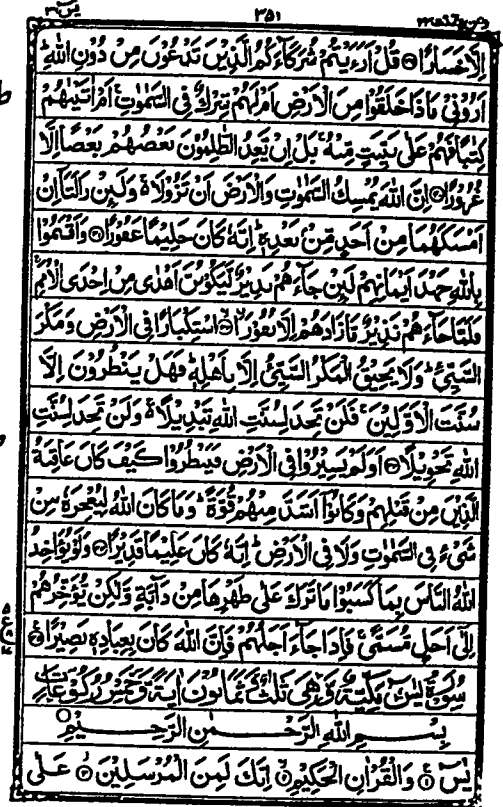 یٰسٓ ٣٦ ٣٥١ ومن یقنت ٢٢
اِلَّا خَسَارًا ۞ قُلْ اَرَءَیْتُمْ شُرَكَآءَكُمُ الَّذِیْنَ تَدْعُوْنَ مِنْ دُوْنِ اللّٰهِ ؕ
اَرُوْنِیْ مَاذَا خَلَقُوْا مِنَ الْاَرْضِ اَمْ لَهُمْ شِرْكٌ فِی السَّمٰوٰتِ ۚ اَمْ اٰتَیْنٰهُمْ
كِتٰبًا فَهُمْ عَلٰی بَیِّنَتٍ مِّنْهُ ۚ بَلْ اِنْ یَّعِدُ الظّٰلِمُوْنَ بَعْضُهُمْ بَعْضًا اِلَّا
غُرُوْرًا ۞ اِنَّ اللّٰهَ یُمْسِكُ السَّمٰوٰتِ وَالْاَرْضَ اَنْ تَزُوْلَا ۬ۚ وَلَئِنْ زَالَتَاۤ اِنْ
اَمْسَكَهُمَا مِنْ اَحَدٍ مِّنْۢ بَعْدِهٖ ؕ اِنَّهٗ كَانَ حَلِیْمًا غَفُوْرًا ۞ وَاَقْسَمُوْا
بِاللّٰهِ جَهْدَ اَیْمَانِهِمْ لَئِنْ جَآءَهُمْ نَذِیْرٌ لَّیَكُوْنُنَّ اَهْدٰی مِنْ اِحْدَی الْاُمَمِ ۚ
فَلَمَّا جَآءَهُمْ نَذِیْرٌ مَّا زَادَهُمْ اِلَّا نُفُوْرًا ۞ اسْتِكْبَارًا فِی الْاَرْضِ وَمَكْرَ
السَّیِّئِ ؕ وَلَا یَحِیْقُ الْمَكْرُ السَّیِّئُ اِلَّا بِاَهْلِهٖ ؕ فَهَلْ یَنْظُرُوْنَ اِلَّا
سُنَّتَ الْاَوَّلِیْنَ ۚ فَلَنْ تَجِدَ لِسُنَّتِ اللّٰهِ تَبْدِیْلًا ۬ۚ وَلَنْ تَجِدَ لِسُنَّتِ
اللّٰهِ تَحْوِیْلًا ۞ اَوَلَمْ یَسِیْرُوْا فِی الْاَرْضِ فَیَنْظُرُوْا كَیْفَ كَانَ عَاقِبَةُ
الَّذِیْنَ مِنْ قَبْلِهِمْ وَكَانُوْۤا اَشَدَّ مِنْهُمْ قُوَّةً ؕ وَمَا كَانَ اللّٰهُ لِیُعْجِزَهٗ مِنْ
شَیْءٍ فِی السَّمٰوٰتِ وَلَا فِی الْاَرْضِ ؕ اِنَّهٗ كَانَ عَلِیْمًا قَدِیْرًا ۞ وَلَوْ یُؤَاخِذُ
اللّٰهُ النَّاسَ بِمَا كَسَبُوْا مَا تَرَكَ عَلٰی ظَهْرِهَا مِنْ دَآبَّةٍ وَّلٰكِنْ یُّؤَخِّرُهُمْ
اِلٰۤی اَجَلٍ مُّسَمًّی ۚ فَاِذَا جَآءَ اَجَلُهُمْ فَاِنَّ اللّٰهَ كَانَ بِعِبَادِهٖ بَصِیْرًا ۞
سُوْرَةُ یٰسٓ مَكِّیَّةٌ وَّهِیَ ثَلٰثٌ وَّثَمَانُوْنَ اٰیَةً وَّخَمْسُ رُكُوْعَاتٍ
بِسْمِ اللّٰهِ الرَّحْمٰنِ الرَّحِیْمِ ۞
یٰسٓ ۚ۞ وَالْقُرْاٰنِ الْحَكِیْمِ ۙ۞ اِنَّكَ لَمِنَ الْمُرْسَلِیْنَ ۙ۞ عَلٰی